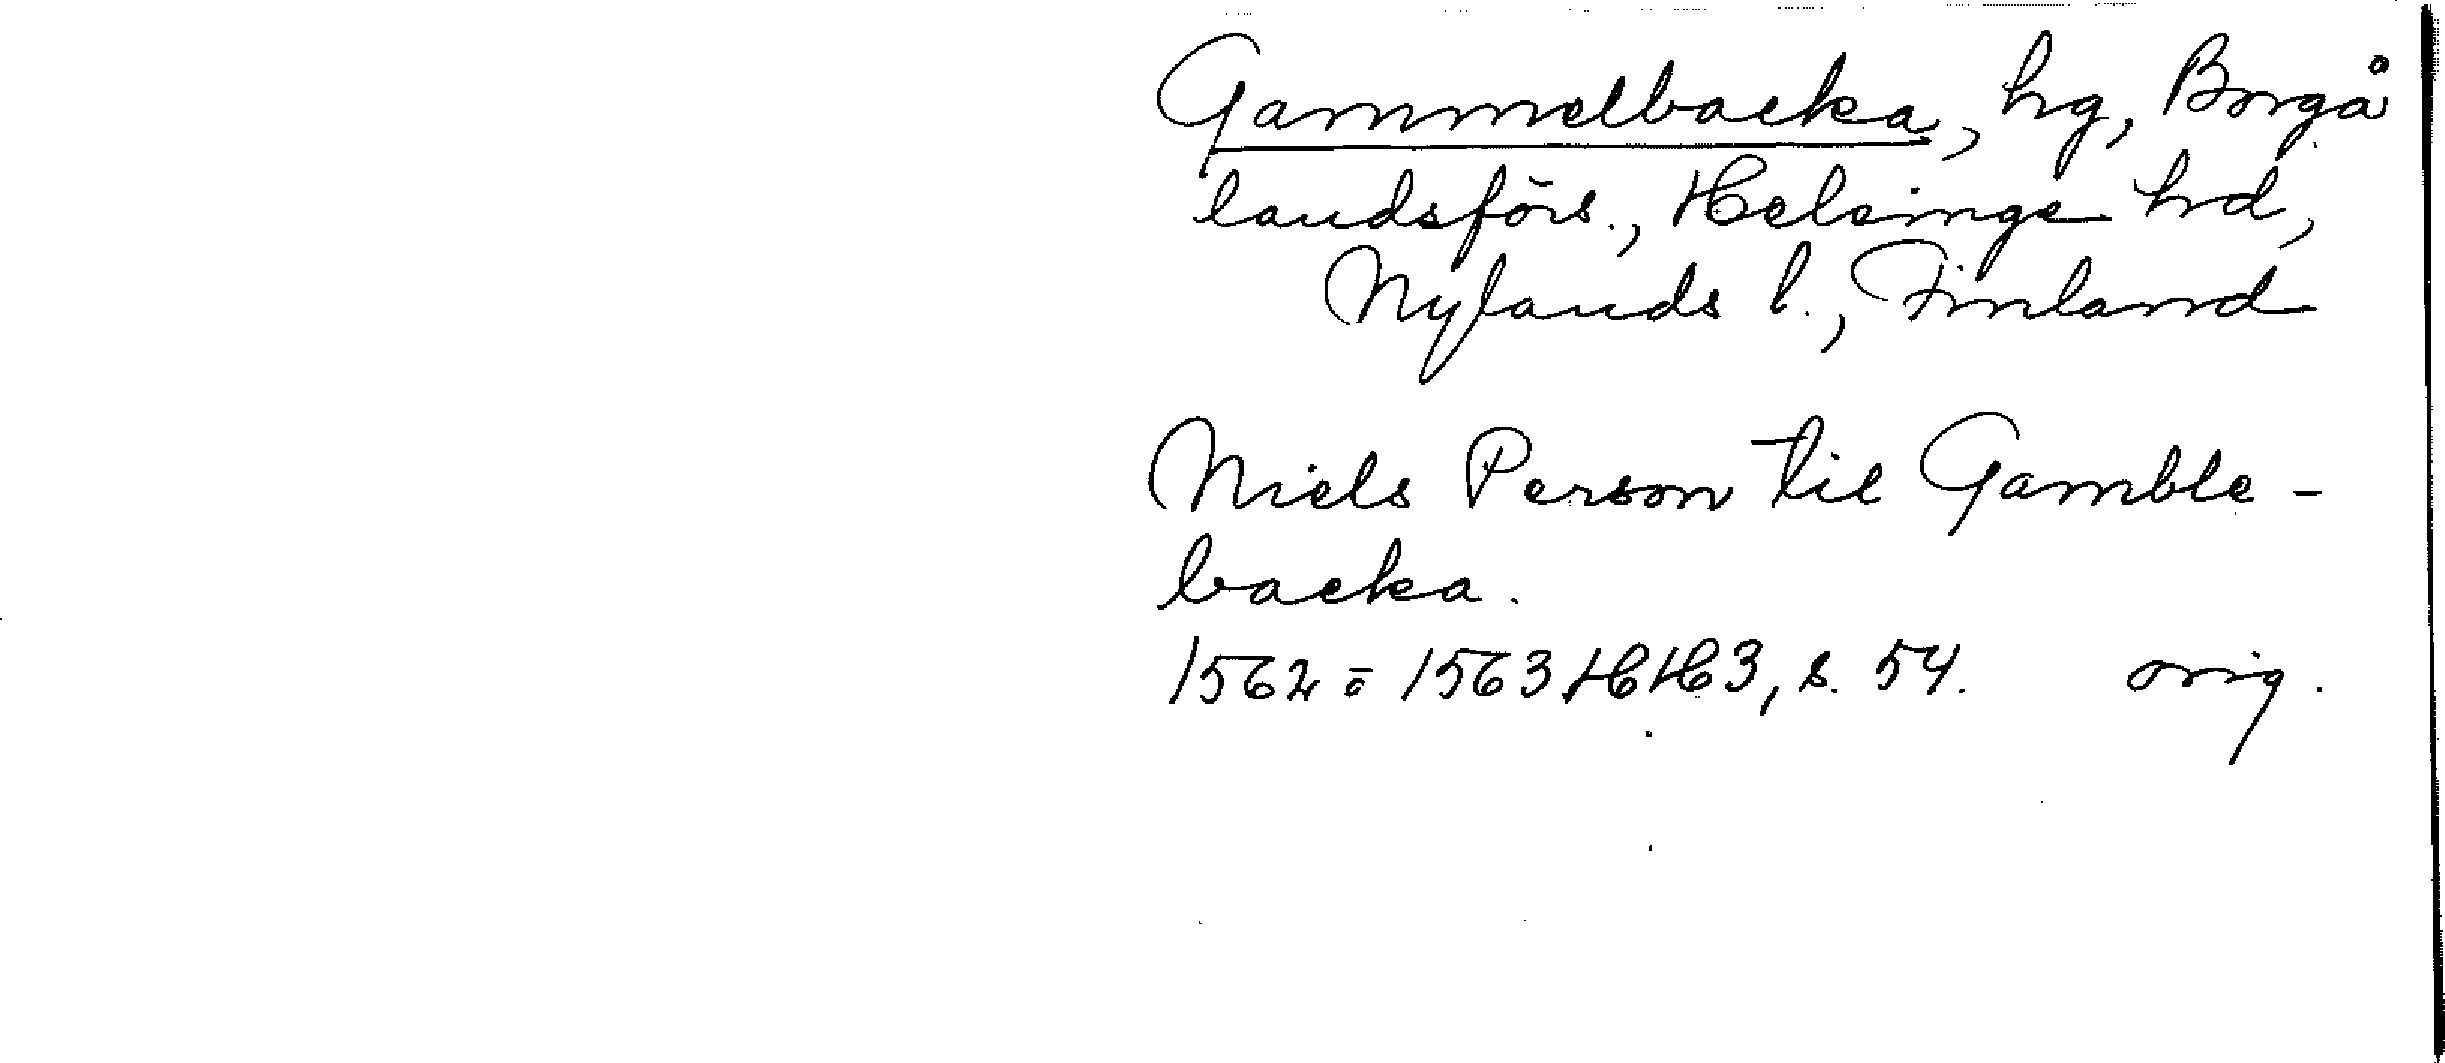 Gammelbacka, hg, Borgå
landsförs., Helsinge hd,
Nylands l., Finland
Niels Person til Gamble-
backa.
1562 = 1563 HH3, s. 54. orig.